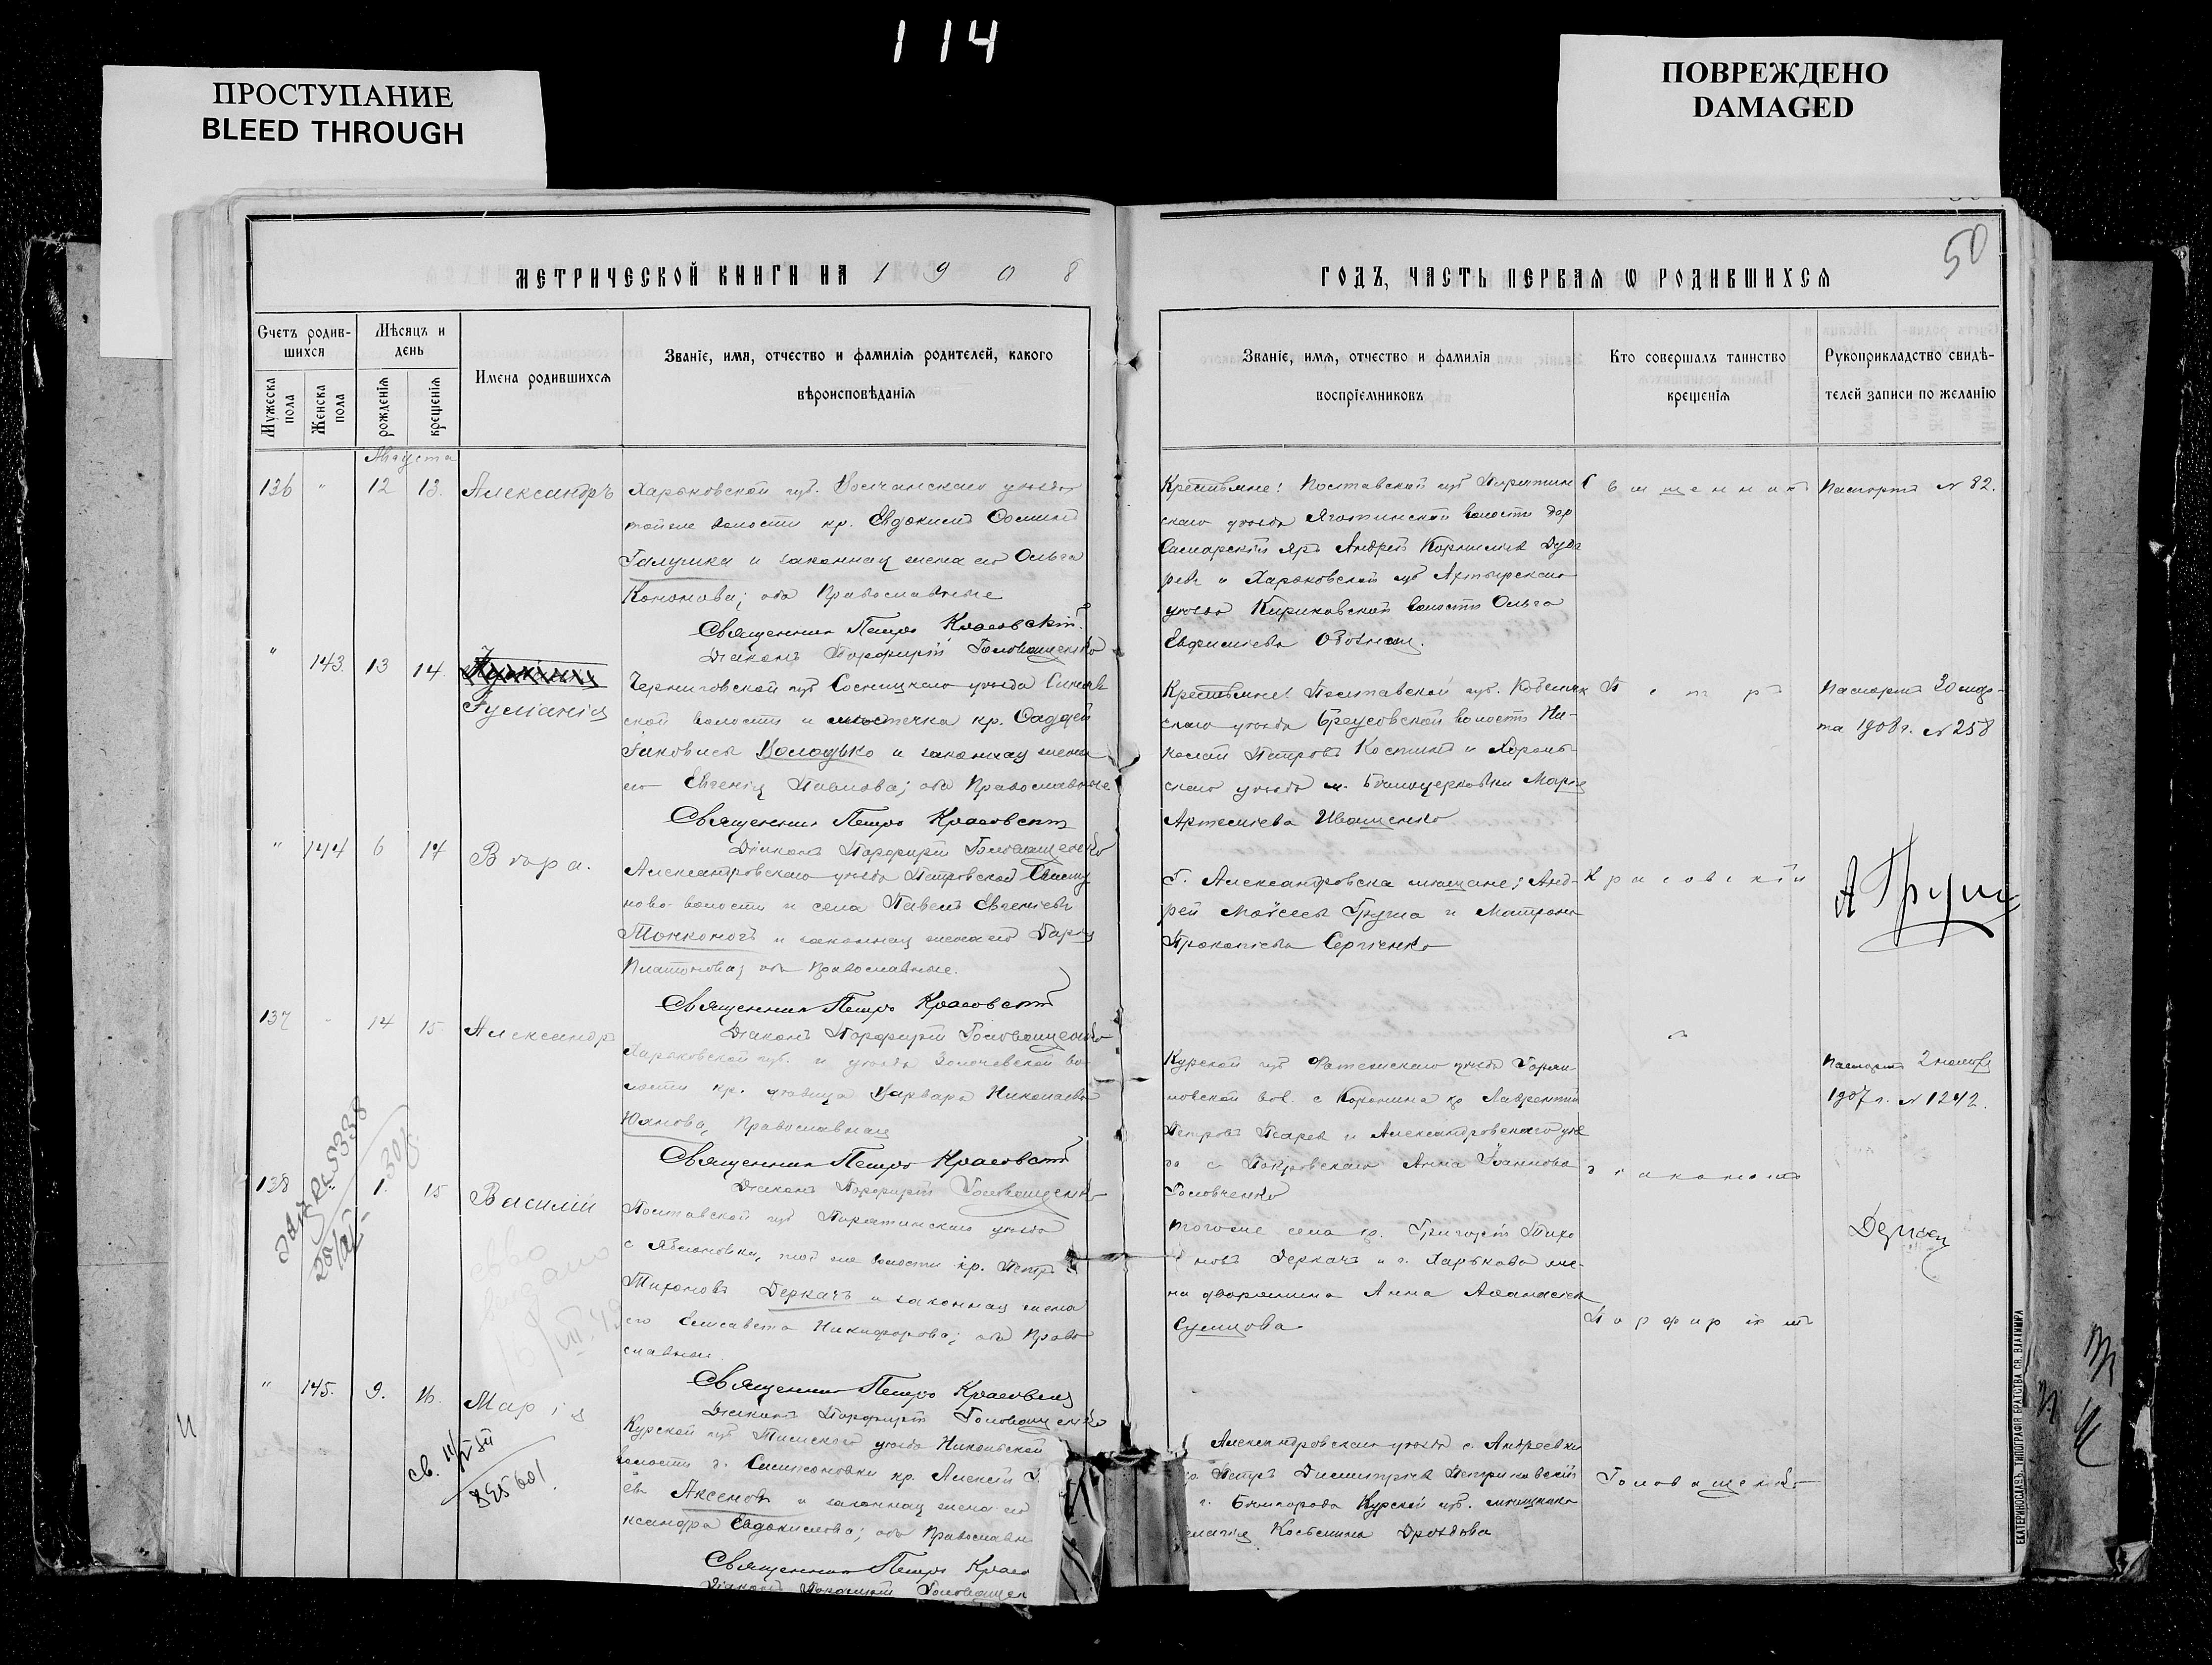 114
ПРОСТУПАНИЕ
BLEED THROUGH
ПОВРЕЖДЕНО
DAMAGED
50
МЕТРИЧЕСКОЙ КНИГИ НА 1908
ГОДЪ, ЧАСТЬ ПЕРВАЯ Ѡ РОДИВШИХСЯ
Счетъ родив-
шихся
Мѣсяцъ и
день
Мужеска
пола
Женска
пола
рожденія
крещенія
Имена родившихся
Званіе, имя, отчество и фамилія родителей, какого
вѣроисповѣданія
Званіе, имя, отчество и фамилія
воспріемниковъ
Кто совершалъ таинство
крещенія
Рукоприкладство свидѣ-
телей записи по желанію
Августа
136 " 12 13. Александръ
Харьковской губ. Волчанскаго уѣзда
тойже волости кр. Евдокимъ Ѳоминъ
Галушка и законная жена его Ольга
Кононова; оба Православные
Священникъ Петръ Красовскій.
Діаконъ Порфирій Головащенко
Крестьяне: Полтавской губ Пирятин
скаго уѣзда Яготинской волости дер
Самарскій яръ Андрей Корниліев
и Харьковской губ Ахтырскаго
уѣзда Кириковской волости Ольга
Паспортъ № 82.
" 143. 13 14
Іуліанія
Черниговской губ Сосницкаго уѣзда
ской волости и мѣстечка кр. Ѳаддей
Іаковлевъ Володько и законная жена
его Евгенія Павлова; оба Православные
Священникъ Петръ Красовскій
Діаконъ Порфирій Головащенко
Крестьяне: Полтавской губ. Кобеляк
скаго уѣзда Бреусовской волости Ни-
колай Петровъ Костинъ и Хороль
скаго уѣзда м. Бѣлоцерковки Марія
Артеміева Иващенко
Паспортъ 30 мар-
та 1908 г. № 258
" 144 6 14 Вѣра.
Александровскаго уѣзда Петровской
ново волости и села Павелъ Евгеніевъ
Тонконогъ и законная жена его Дарія
Платонова; оба Православные.
Священникъ Петръ Красовскій
Діаконъ Порфирій Головащенко
Г. Александровска мѣщане: Анд-
рей Моѵсеевъ Груша и Матрона
Прокопіева Сергіенко
А Груш
137 " 14 15 Александръ
Харьковской губ. и уѣзда Золочевской во-
лости кр. дѣвица Варвара Николаева
Юхнова, Православная
Священникъ Петръ Красовскій
Діаконъ Порфирій Головащенко
Курской губ Фатежскаго уѣзда
вол. с кр Лаврентій
Петровъ Псаревъ и Александровскаго уѣз
да с Покровскаго Анна Іоаннова
Головченко
Паспортъ 2 ноября
1907 г. № 1242.
138 " 1. 15 Василій
Полтавской губ Пирятинскаго уѣзда
с Яблоновки, той же волости кр. Петръ
Тихоновъ Деркачъ и законная жена
его Елисавета Никифорова; оба Право
славные.
Священникъ Петръ Красовскій
Діаконъ Порфирій Головащенко
тогоже села кр. Григорій Тихо
новъ Деркачъ и г. Харькова же-
на дворянина Анна Аѳанасіева
Сумцова
" 145. 9. 16. Марія
Курской губ Тимскаго уѣзда Никольской
волости д. Симионовки кр. Алексій
евъ Аксеновъ и законная жена его
ксандра Евдокимова; оба Православн
Священникъ Петръ Красо
Діаконъ Порфирій Головащен
Александровскаго уѣзда с. Андреевки
Петръ Димитріевъ Петриковскій
г. Бѣлгорода Курской губ. мѣщанка
Косьмина Дроздова
Священникъ
Петръ
Красовскій
съ
діакономъ
Порфиріемъ
Головащенко
ЕКАТЕРИНОСЛАВЪ. ТИПОГРАФІЯ БРАТСТВА СВ. ВЛАДИМІРА